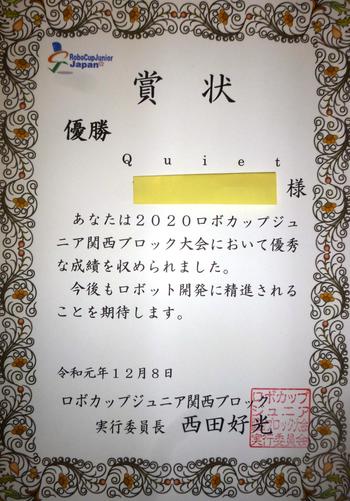 RoboCupJunior
Japan
賞状
優勝
Quiet
様
あなたは2020ロボカップジュ
ニア関西ブロック大会において優秀
な成績を収められました。
今後もロボット開発に精進される
ことを期待します。
令和元年12月8日
ロボカップジュニア関西ブロック
実行委員長 西田好光
ロボカップ
ジュニア
ブロック大会
実行委員会